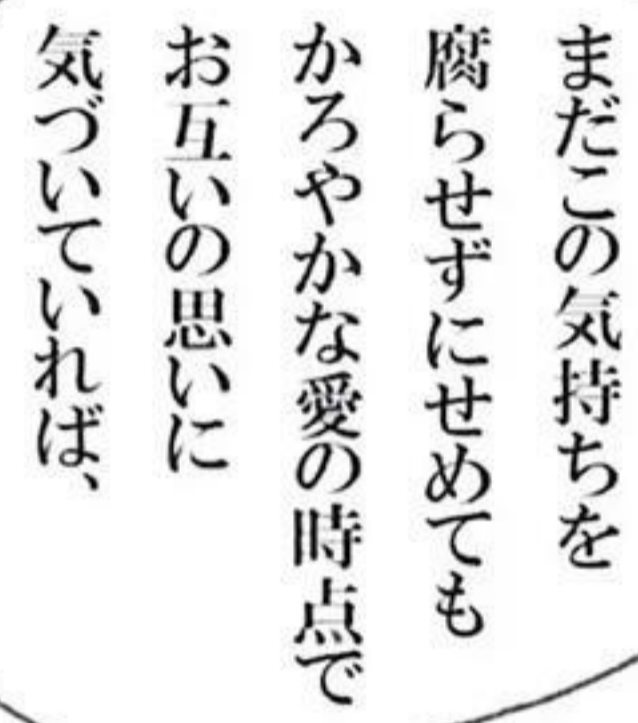 まだこの気持ちを
腐らせずにせめても
かろやかな愛の時点で
お互いの思いに
気づいていれば、